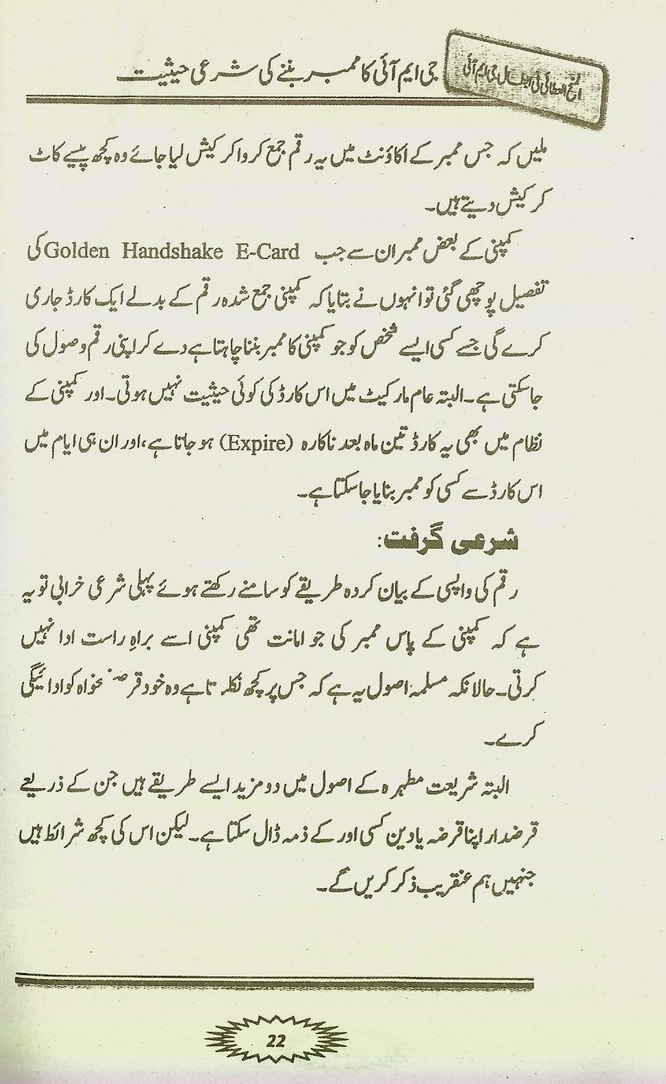 جی ایم آئی کا ممبر بننے کی شرعی حیثیت
ملیں کہ جس ممبر کے اکاؤنٹ میں یہ رقم جمع کروا کر کیش لیا جائے وہ کچھ پیسے کاٹ
کر کیش دیتے ہیں۔
کمپنی کے بعض ممبران سے جب Golden Handshake E-Card کی
تفصیل پوچھی گئی تو انہوں نے بتایا کہ کمپنی جمع شدہ رقم کے بدلے ایک کارڈ جاری
کرے گی جسے کسی ایسے شخص کو جو کمپنی کا ممبر بننا چاہتا ہے دے کر اپنی رقم وصول کی
جاسکتی ہے۔ البتہ عام مارکیٹ میں اس کارڈ کی کوئی حیثیت نہیں ہوتی۔ اور کمپنی کے
نظام میں بھی یہ کارڈ تین ماہ بعد ناکارہ (Expire) ہو جاتا ہے، اور ان ہی ایام میں
اس کارڈ سے کسی کو ممبر بنایا جاسکتا ہے۔
شرعی گرفت:
رقم کی واپسی کے بیان کردہ طریقے کو سامنے رکھتے ہوئے پہلی شرعی خرابی تو یہ
ہے کہ کمپنی کے پاس ممبر کی جو امانت تھی کمپنی اسے براہِ راست ادا نہیں
کرتی۔ حالانکہ مسلمہ اصول یہ ہے کہ جس پر کچھ نکلتا ہے وہ خود قرض خواہ کو ادائیگی
کرے۔
البتہ شریعت مطہرہ کے اصول میں دو مزید ایسے طریقے ہیں جن کے ذریعے
قرضدار اپنا قرضہ یا دین کسی اور کے ذمہ ڈال سکتا ہے۔ لیکن اس کی کچھ شرائط ہیں
جنہیں ہم عنقریب ذکر کریں گے۔
22